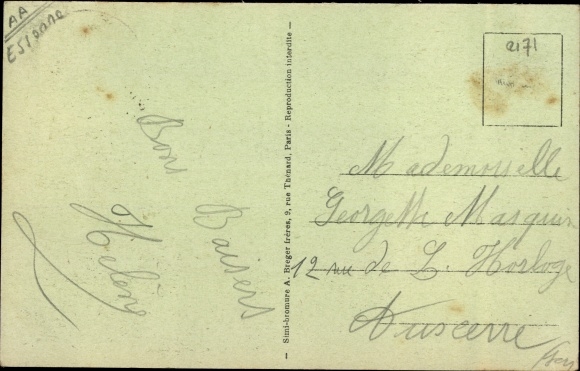 AA
Espagne
2171
Bons Baisers
Hélène
Simi-bromure A. Breger frères, 9, rue Thénard, Paris - Reproduction interdite —
1
Mademoiselle
Georgette Masquin
12 rue de L. Horloge
Auxerre